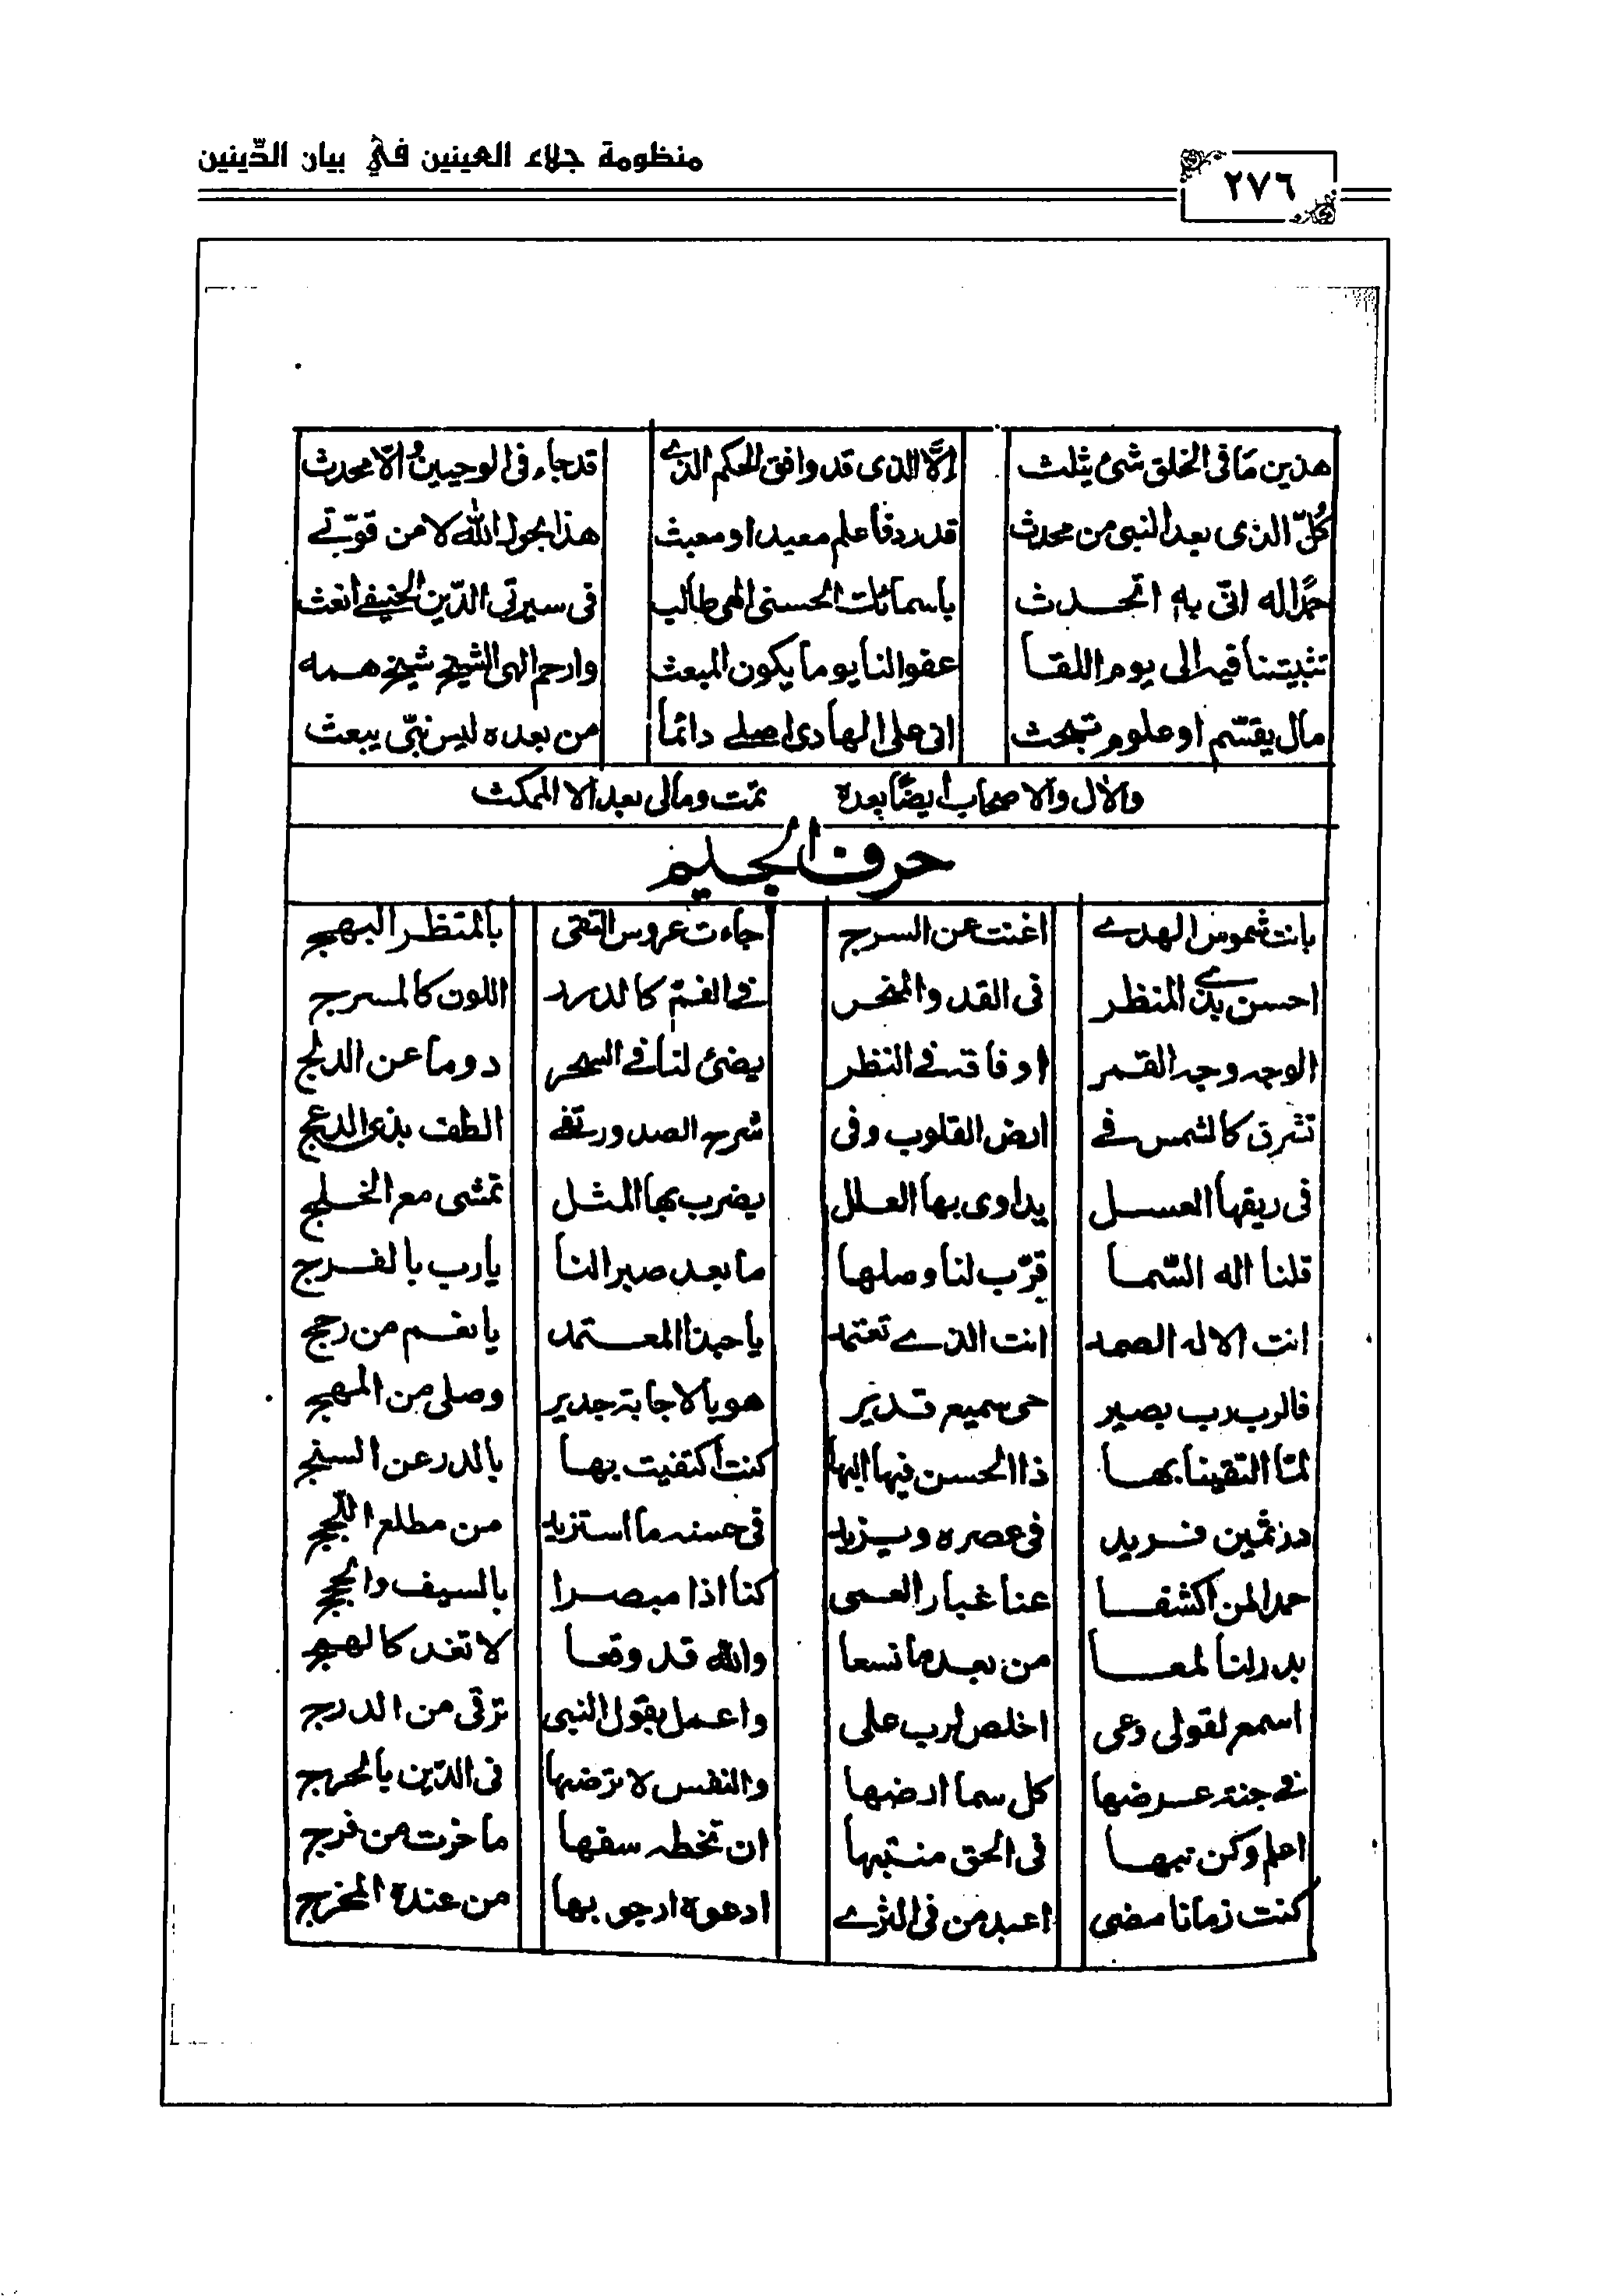 منظومة جلاء العينين في بيان الدّينين
٢٧٦
هذين ما في الخلق شئ يثلث الّا الذى قد وافق الحكم الذے قد جاء فى الوحيين والّا محدث
كُلّ الذى بعد النبى من محدث قد رد قا علم معيد او معبث هذا بحول الله لا من قوّتے
حمدًا له انّى به اتحدث باسمائك الحسنى الهى طالب فى سيرتى الدّين الحنيفے انعث
تثبيتنا فيه الى يوم اللقا عفوا لنا يوما يكون المبعث وارحم الهى الشيخ شيخ همه
مال يقسّم او علوم تبحث انى على الهادى اصلے دائما من بعده ليس نبىّ يبعث
والآل والاصحاب أيضًا بعده تمت ومالى بعد الا الممكث
حرف الجيم
بانت شموس الهدے اغنت عن السرج جاءت عروس التقى بالمنظر البهج
احسن بذے المنظر فى القد والمنحر فے الفم كالدرر اللون كالمسرج
الوجه وجه القمر او فاقه فے النظر يضئ لنا فے السحر دوما عن الدلج
تشرق كالشمس فے ارض القلوب وفى شرح الصدور تفے الطف بذى الدعج
فى ريقها العسل يداوى بها العلل يضرب بها المثل تمشى مع الخلج
قلنا اله السّما قرّب لنا وصلها ما بعد صبر النا يارب بالفرج
انت الاله الصمد انت الذے تعتمد يا حبذا المعتمد يا نعم من رجج
فالرب رب بصير حى سميع قدير هو بالاجابة جدير وصلى من المهج
لمّا التقينا بها ذا الحسن فيها البها كنت اكتفيت بها بالدر عن السبج
در ثمين فريد فى عصره ويزيد فى حسنه ما استزيد من مطلع اللجج
حمدا لمن اكشفا عنا غبار العمى كنا اذا مبصرا بالسيف والحجج
بدر لنا لمعا من بعد ما نسعا والله قد وقعا لا تغد كالهمج
اسمع لقولى وعى اخلص لرب على واعمل بقول النبى ترقى من الدرج
فے جنة عرضها كل سما ارضها والنفس لا ترضها فى الدّين بالحرج
اعلم وكن نبها فى الحق منتبها ان تخطه سفها ما حزت من فرج
كنت زمانا مضى اعبد من فى الثرے ادعوه ارجو بها من عنده المخرج